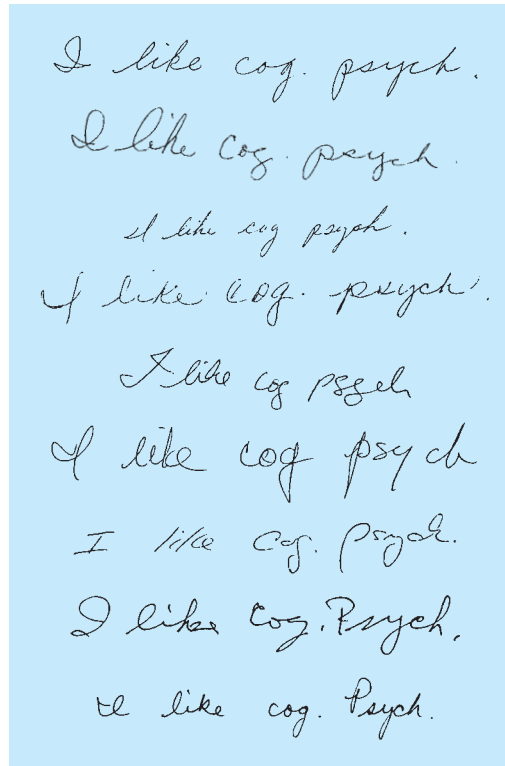 I like cog. psych.
I like cog. psych.
I like cog psych.
I like cog. psych.
I like cog psych
I like cog psych
I like cog. psych.
I like cog. Psych.
I like cog. Psych.